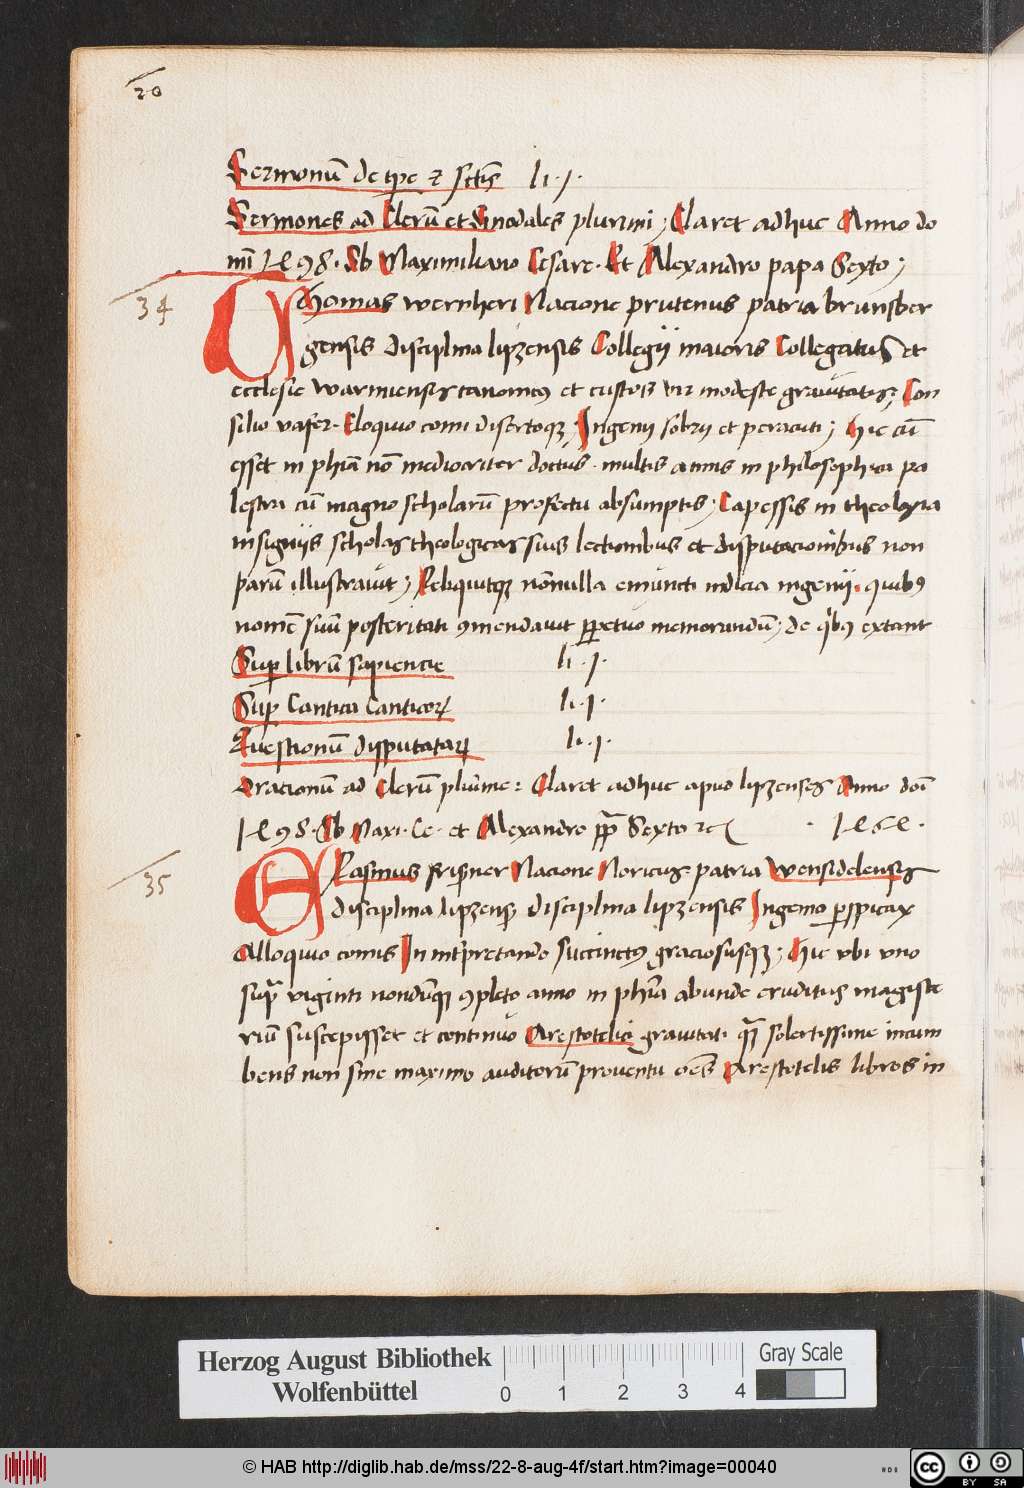 20
Sermonū de tpe et sctis li. j.
Sermones ad Clerū et Sinodales plurimi; Claret adhuc Anno do
mī 1498. Sb Maximiliano Cesare. Et Alexandro papa Sexto;
34
Thomas wernheri Nacione prutenus patria brunsber
gensis disciplina lipzensis Collegij maioris Collegiatus et
ecclesie warmiensis canonicus et custos vir modeste gravitatis; Con
silio vafer. Eloquio comi disertoque. Ingenij sobrij et peracuti; hic cū
esset in phia nō mediocriter doctus. multis annis in philosophia pa
lestra cū magno scholarū profectu absumptis; Capessis in theologia
insignijs scholas theologicas suis lectionibus et disputacionibus non
parū illustravit; Reliquitque nōnulla emuncti indicia ingenij. quibus
nomē suū posteritati commendavit perpetuo memorandū; de quibus extant
Sup librū sapiencie li. j.
Sup Cantica Canticorum li. j.
Questionū disputatarum li. j.
Orationū ad Clerū plurime: Claret adhuc apud lipzenses Anno doī
1498. Sb Maxi. Ce. et Alexandro pp Sexto etc
35
Erasmus frisner Nacione Noricus patria wensidelensis
disciplina lipzens disciplina lipzensis Ingenio perspicax
Alloquio comis In intpretando succinctus graciosusque; hic vbi vno
supra viginti nondūque completo anno in phia abunde eruditus magiste
riū suscepisset et continuo Arestotelice gravitati quam solertissime incum
bens non sine maximo auditorū proventu oēs Arestotelis libros in
Herzog August Bibliothek
Wolfenbüttel
0 1 2 3 4
Gray Scale
© HAB http://diglib.hab.de/mss/22-8-aug-4f/start.htm?image=00040
HAB
cc BY SA